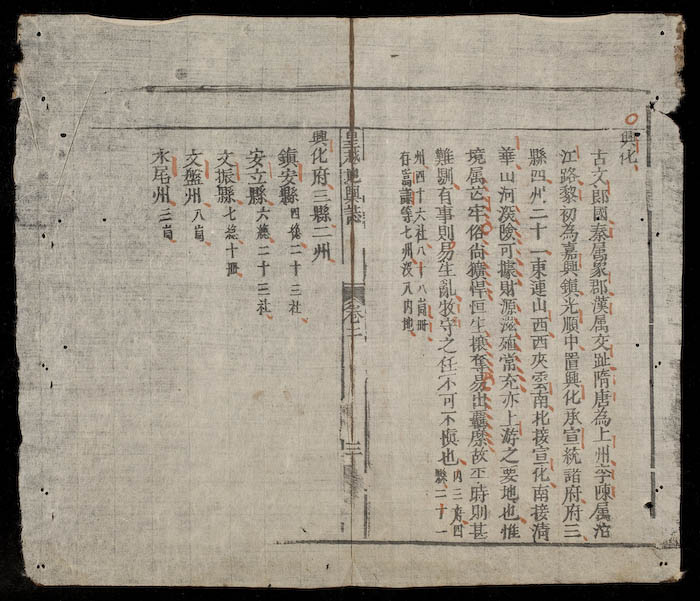 興化
古文郎國秦属象郡漢属交趾隋唐為上州李陳属沱
江路黎初為嘉興鎮光順中置興化承宣統諸府府三
縣四州二十一東連山西西夾雲南北接宣化南接清
華山河深險可據財源滋殖常充亦上游之要地也惟
境属芒牢俗尚獷悍恒生攘奪易出釁隙故平時則甚
難馴有事則易生亂牧守之任不可不慎也內三府四縣二十一
州四十六社八十八峝冊
存嵩謙等七州没入內地
皇越地輿誌 卷二 三
興化府三縣二州
鎮安縣四總二十三社
安立縣六總二十三社
文振縣七總十冊
文盤州八峝
水尾州三峝